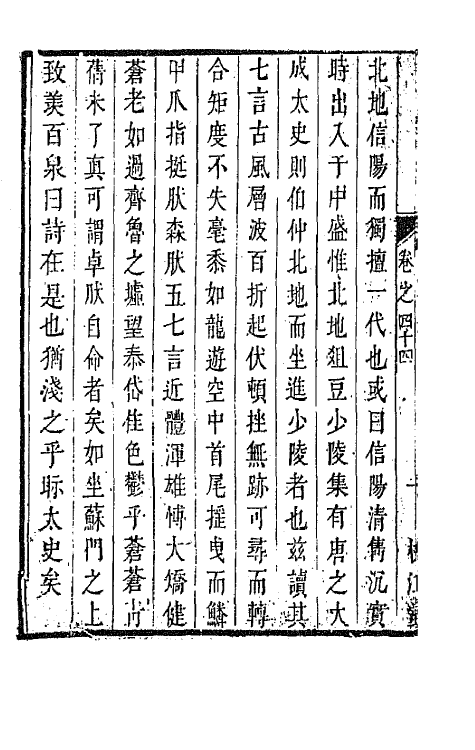 卷之四十四
北地信陽而獨擅一代也或曰信陽清雋沉實
時出入于中盛惟北地俎豆少陵集有唐之大
成太史則伯仲北地而坐進少陵者也茲讀其
七言古風層波百折起伏頓挫無跡可尋而轉
合矩度不失毫黍如龍遊空中首尾搖曳而鱗
甲爪指挺肰森肰五七言近體渾雄博大矯健
蒼老如過齊魯之墟望泰岱佳色鬱乎蒼蒼青
蒨未了真可謂卓肰自命者矣如坐蘇門之上
致羨百泉曰詩在是也猶淺之乎眎太史矣